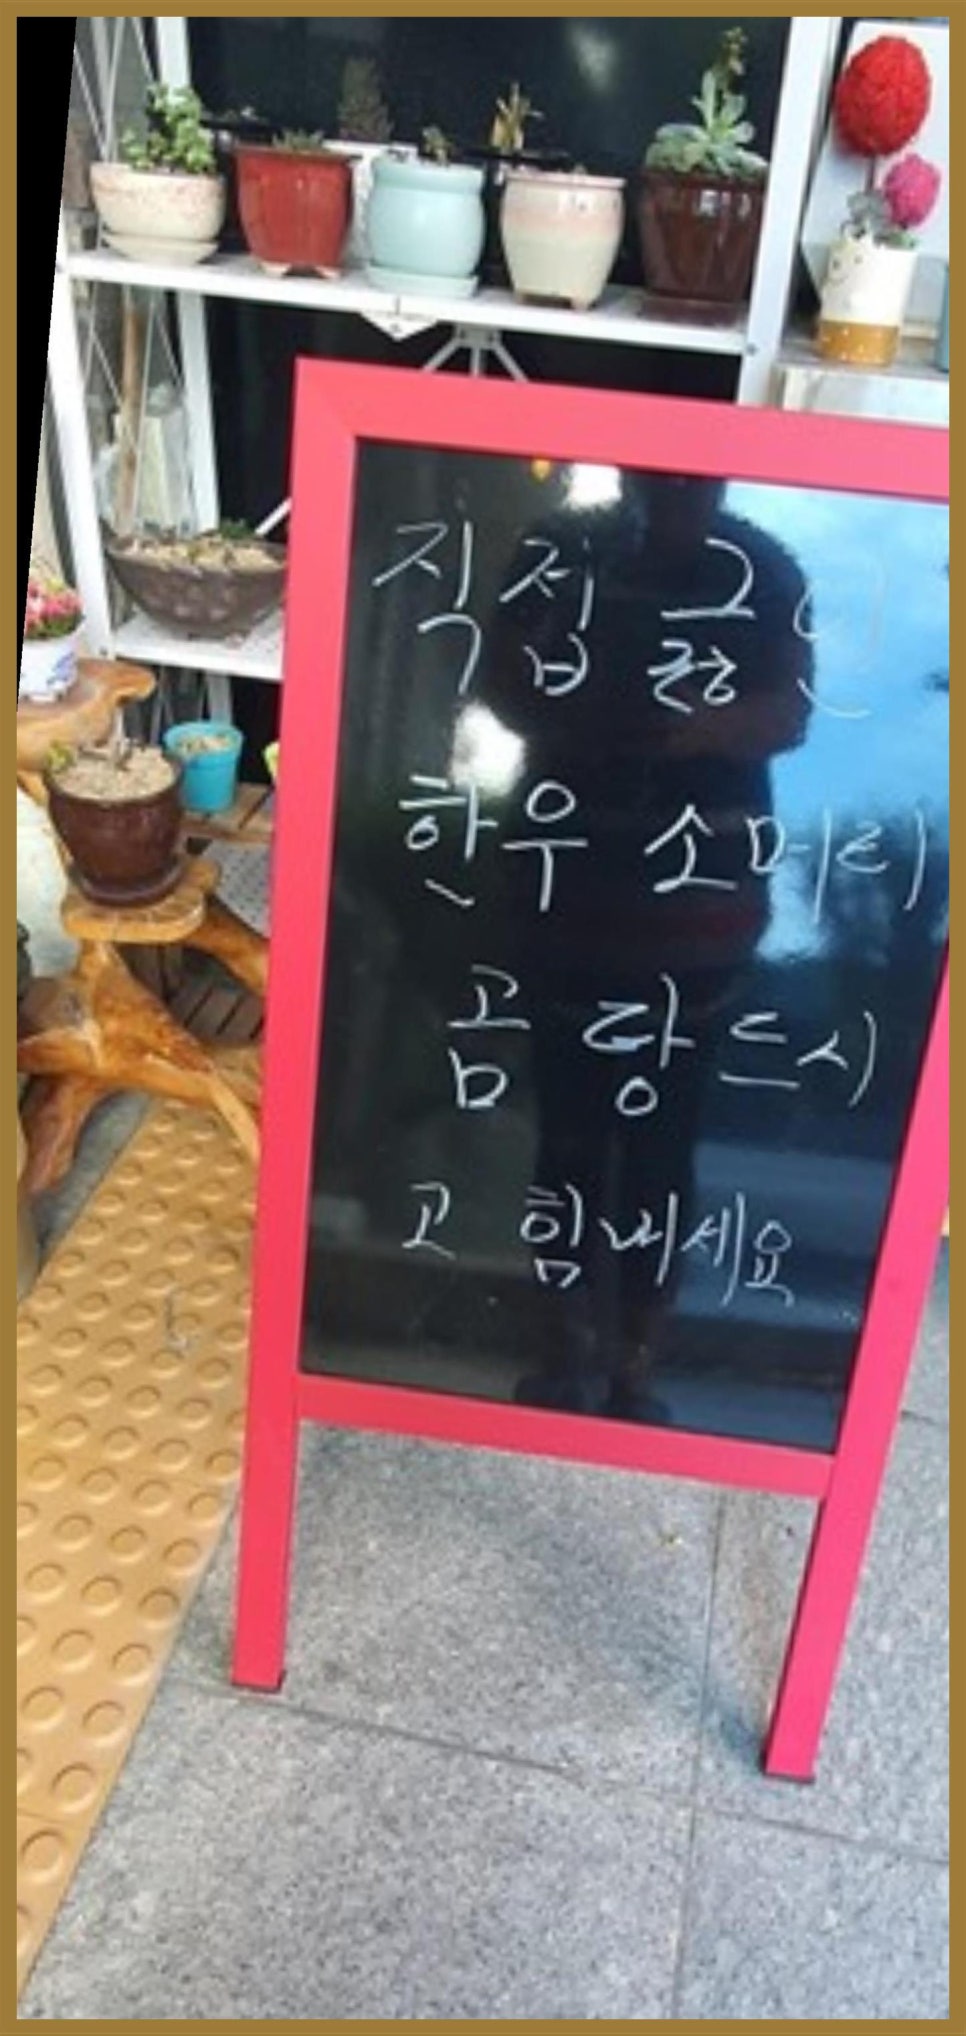 직접 긇인
한우 소머리
곰 탕 드시
고 힘내세요